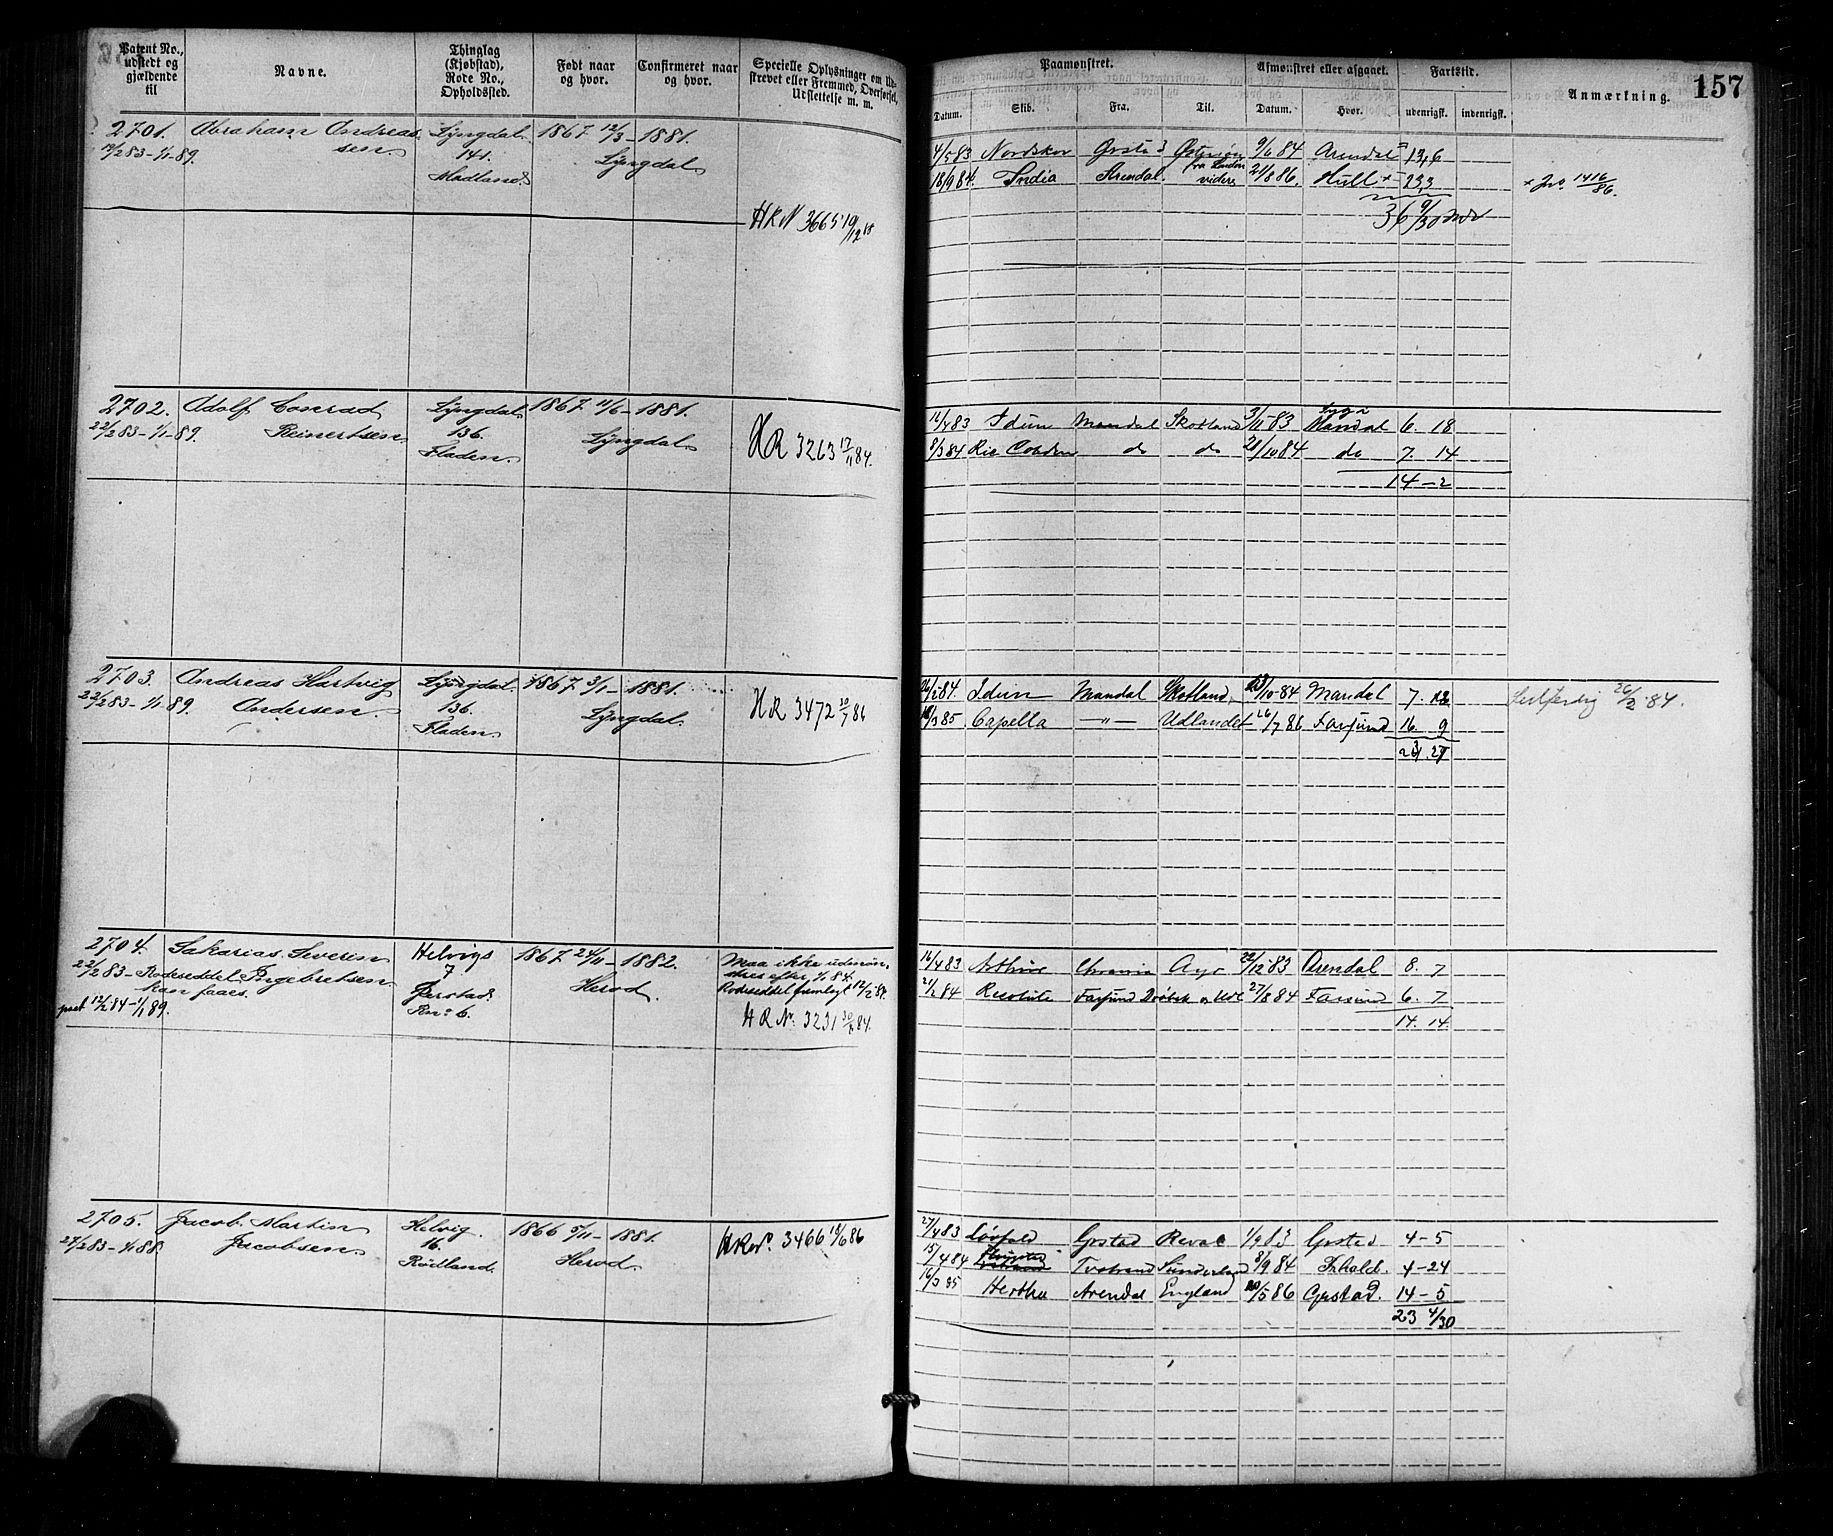 Patent No., udstedt og gjældende til
Navne.
Thinglag (Kjøbstad), Rode No., Opholdssted.
Født naar og hvor.
Confirmeret naar og hvor.
Specielle Oplysninger om Udstrevet eller Fremmed, Overførsel, Udslettelse m. m.
Paamønstret.
Afmønstret eller afgaaet.
Fartstid.
Anmærkning.
157
Datum.
Skib.
Fra.
Til.
Datum.
Hvor.
udenrigsk.
indenrigsk.
2701. Abraham Andreas Lyngdal 1867 12/3 - 1881.
sen
12/2 83 - 1/1 89. 141. Lyngdal
Madland
HRN 3665 19/12 85
4/5 83 Nordskov 9/6 84 Arendal 13,6
18/9 84. India Arendal videre 21/8 86. Hull + 23,3 + Jno. 1416/86.
36 9/30 Mdr
2702. Adolf Conrad Lyngdal 1867 11/6 - 1881.
22/2 83 - 1/1 89. Reinertsen 136. Lyngdal
Fladen. HR 3263 17/11 84.
11/4 83 Idun Mandal Skotland 3/11 83 Mandal 6. 18
8/3 84 Ric Cobden do do 28/10 84 do 7. 14
14 - 2
2703. Andreas Hartvig Lyngdal 1867 3/1 - 1881.
22/2 83 - 1/1 89. Andersen. 136. Lyngdal
Fladen. HR 3472 30/7 86
26/2 84. Idun Mandal Skotland 23/10 84 Mandal 7.
10/3 85 Capella - " - Udlandet 26/7 86 Farsund 16. 9
26/2 84.
2704. Sakarias Severin Helvigs 1867 24/11 - 1882.
22/2 83 - Rodeseddel Ingebretsen 7 Herod.
kan faaes. Jerstad
12/2 84 - 1/1 89. Rno 6.
Maa ikke udmøn-
stres efter 1/1 84.
Rodeseddel fremlagt 12/2 84.
HR No. 3231 84.
16/4 83 Arthur Ayr 22/12 83 Arendal 8. 7
21/2 84 Resolute Farsund Drøbak 27/8 84 Farsund 6. 7
14. 14
2705. Jacob Martin Helvig. 1866 5/11 - 1881.
27/2 83 - 1/1 88. Jacobsen 16. Herod.
Rødland. HRNo. 3466 18/6 86
27/4 83 Grstad Reval 1/9 83 Grstad 4 - 5
15/4 84 Tvetrand Sunderland 8/9 84 4 - 24
16/3 85 Hertha Arendal England 20/5 86 Grstad. 14 - 5
23 4/30